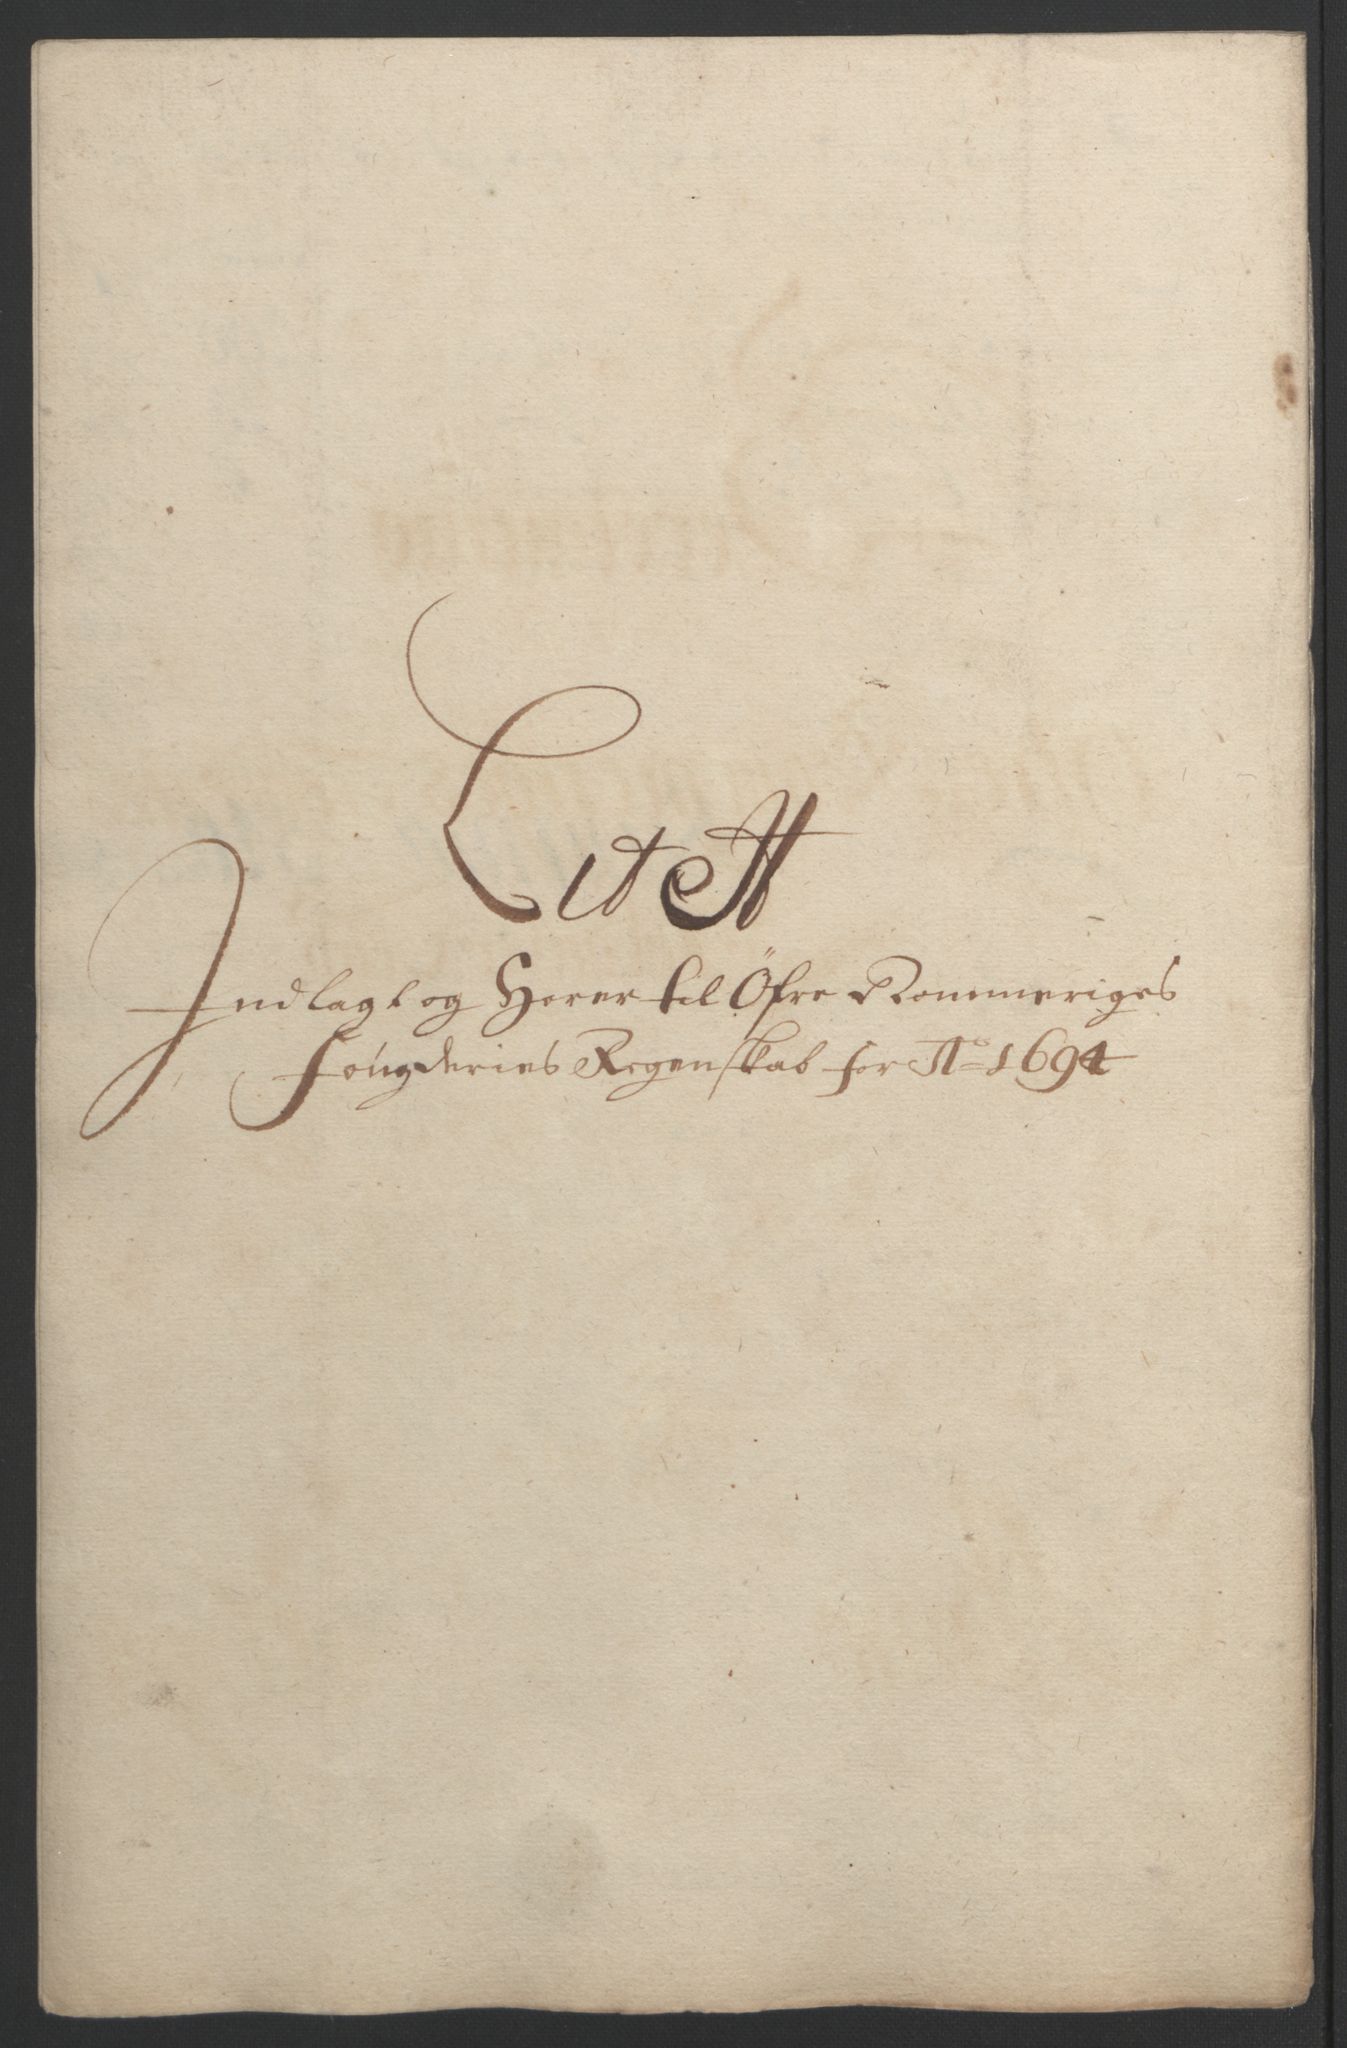 Lit A
Indlagt og Hører til Öfre Rommeriges
Fougderies Regenskab for Ao 1694